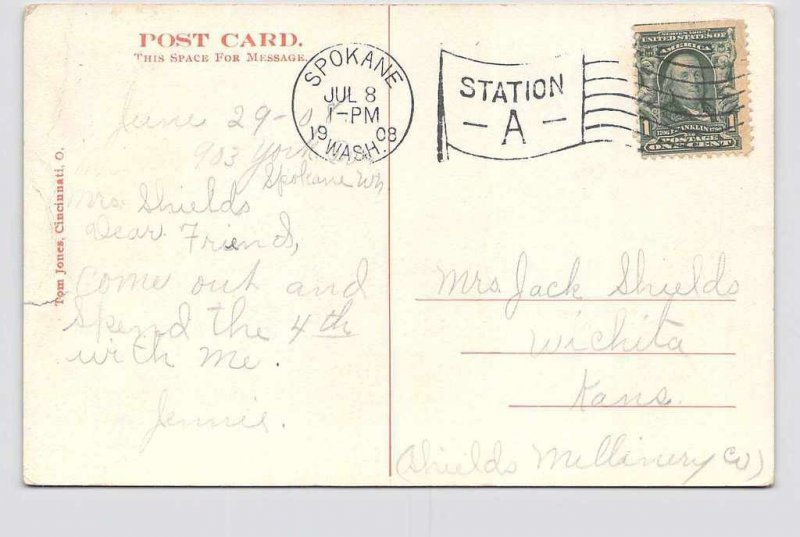 POST CARD.
THIS SPACE FOR MESSAGE.
SPOKANE
JUL 8
1-PM
1908
WASH.
STATION
-A-
SERIES 1902
UNITED STATES OF
AMERICA
1706 FRANKLIN 1790
1 POSTAGE
ONE CENT
June 29-08
903 York
Spokane Wn
Mrs Shields
Dear Friend,
Come out and
Spend the 4th
with me.
Jennie.
Tom Jones, Cincinnati, O.
Mrs Jack Shields
Wichita
Kans.
(Shields Millinery Co)